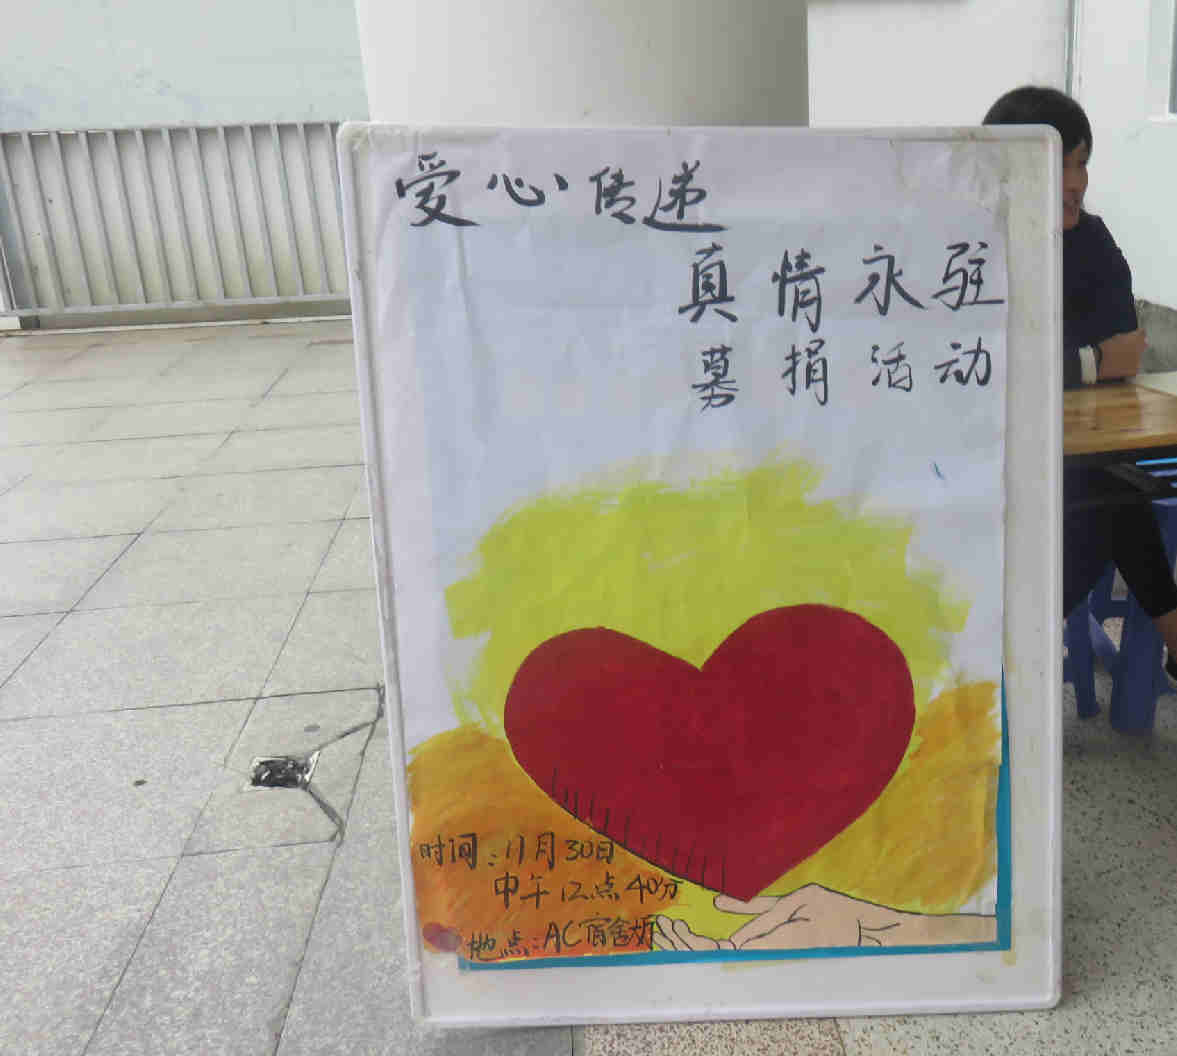 爱心传递
真情永驻
募捐活动
时间:11月30日
中午12点40分
地点:AC宿舍